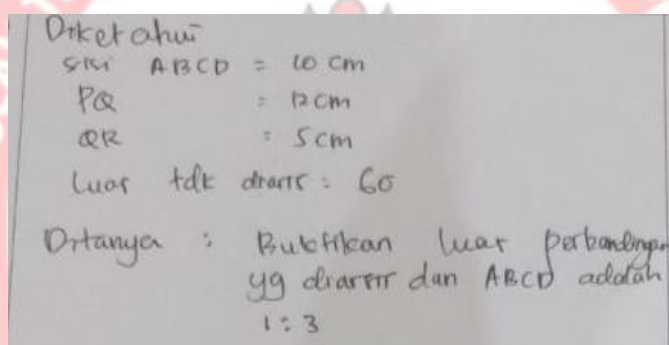 Diketahui
sisi ABCD = 10 cm
PQ = 12 cm
QR = 5 cm
Luas tdk diarsir = 60
Ditanya : Buktikan luas perbandingan
yg diarsir dan ABCD adalah
1 : 3